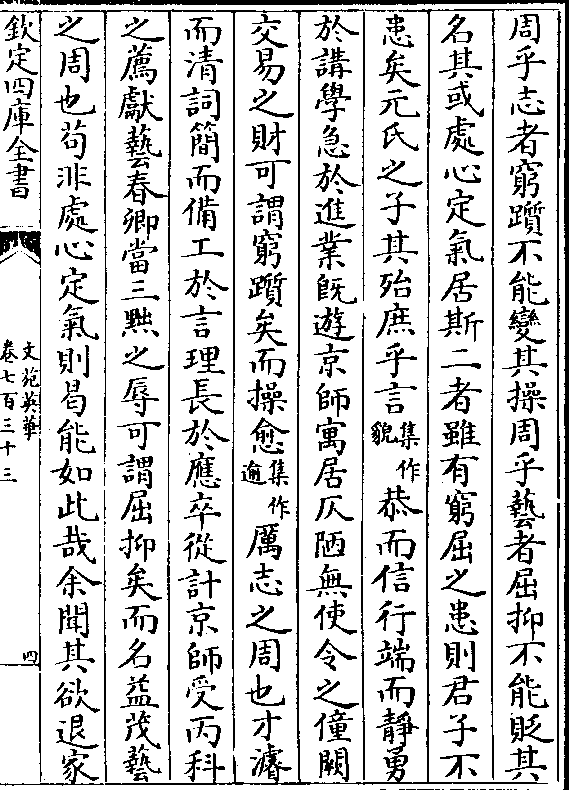 周乎志者窮躓不能變其操周乎藝者屈抑不能貶其
名其或處心定氣居斯二者雖有窮屈之患則君子不
患矣元氏之子其殆庶乎言集作貌恭而信行端而靜勇
於講學急於進業既遊京師寓居仄陋無使令之僮闕
交易之財可謂窮躓矣而操愈集作逾厲志之周也才濬
而清詞簡而備工於言理長於應卒從計京師受丙科
之薦獻藝春卿當三黜之辱可謂屈抑矣而名益茂藝
之周也苟非處心定氣則曷能如此哉余聞其欲退家
欽定四庫全書
文苑英華
卷七百三十三
四